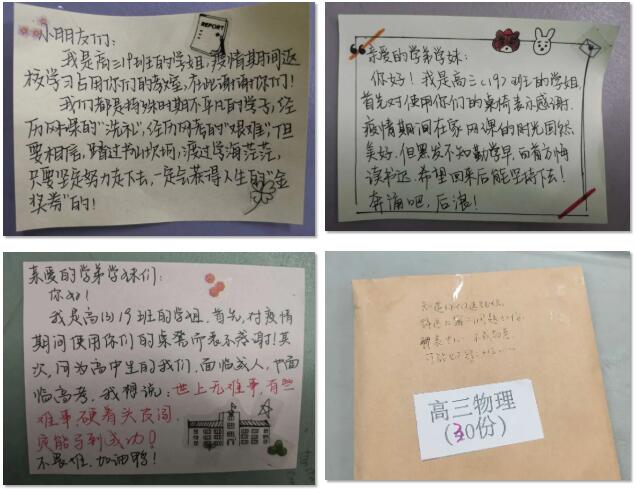 小朋友们:
REPORT
我是高三19班的学姐,疫情期间返
校学习占用你们的教室,在此谢谢你们!
我们都是特殊时期不平凡的学子,经
历网课的"洗礼",经历网考的"艰难",但
要相信,踏过书山坎坷,渡过学海茫茫,
只要坚定努力走下去,一定会获得人生的"金
奖券"的!
亲爱的学弟学妹:
你好!我是高三(19)班的学姐
首先对使用你们的桌椅表示感谢.
疫情期间在家网课的时光固然
美好.但黑发不知勤学早,白首方悔
读书迟.希望回来后能坚持下去!
奔涌吧,后浪!
亲爱的学弟学妹们:
你好!
我是高(3)19班的学姐.首先,对疫情
期间使用你们的桌凳所表示感谢!其
次,同为高中生的我们,面临成人,也面
临高考.我想说:世上无难事,有些
难事,硬着头皮闯
只能弓到成功!
不畏难.加油鸭!
高三物理
(30份)